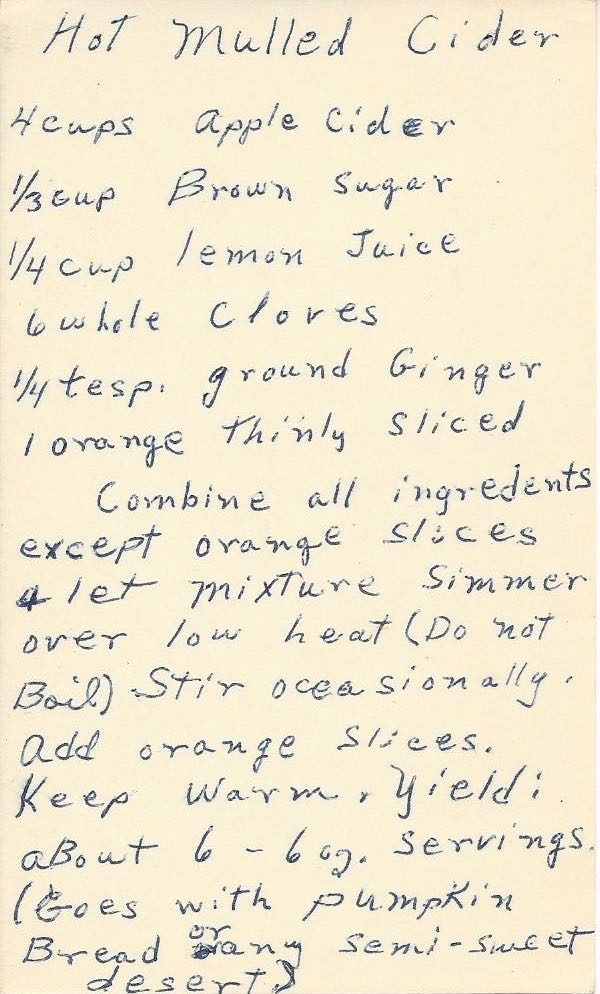 Hot Mulled Cider
4 cups Apple Cider
1/3 cup Brown Sugar
1/4 cup lemon Juice
6 whole Cloves
1/4 tesp. ground Ginger
1 orange thinly sliced
Combine all ingredents
except orange slices
& let mixture simmer
over low heat (Do not
Boil) Stir oceasionally.
Add orange slices.
Keep warm. Yield:
aBout 6 - 6 oz. servings.
(Goes with pumpkin
Bread or any semi-sweet
desert)